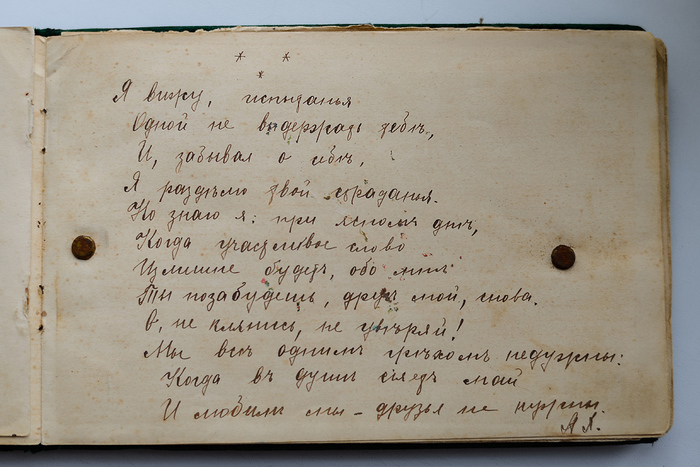 * *
*
Я вижу, испытанья
Одной не выдержать тебѣ,
И, забывая о себѣ,
Я раздѣлю твои страданья.
Но знаю я: при ясномъ днѣ,
Когда участливое слово
Излишне будетъ, обо мнѣ
Ты позабудешь, другъ мой, снова.
О, не клянись, не увѣряй!
Мы всѣ однимъ грѣхомъ недужны:
Когда въ душѣ сіяетъ май
И любимы мы - друзья не нужны.
А. А.